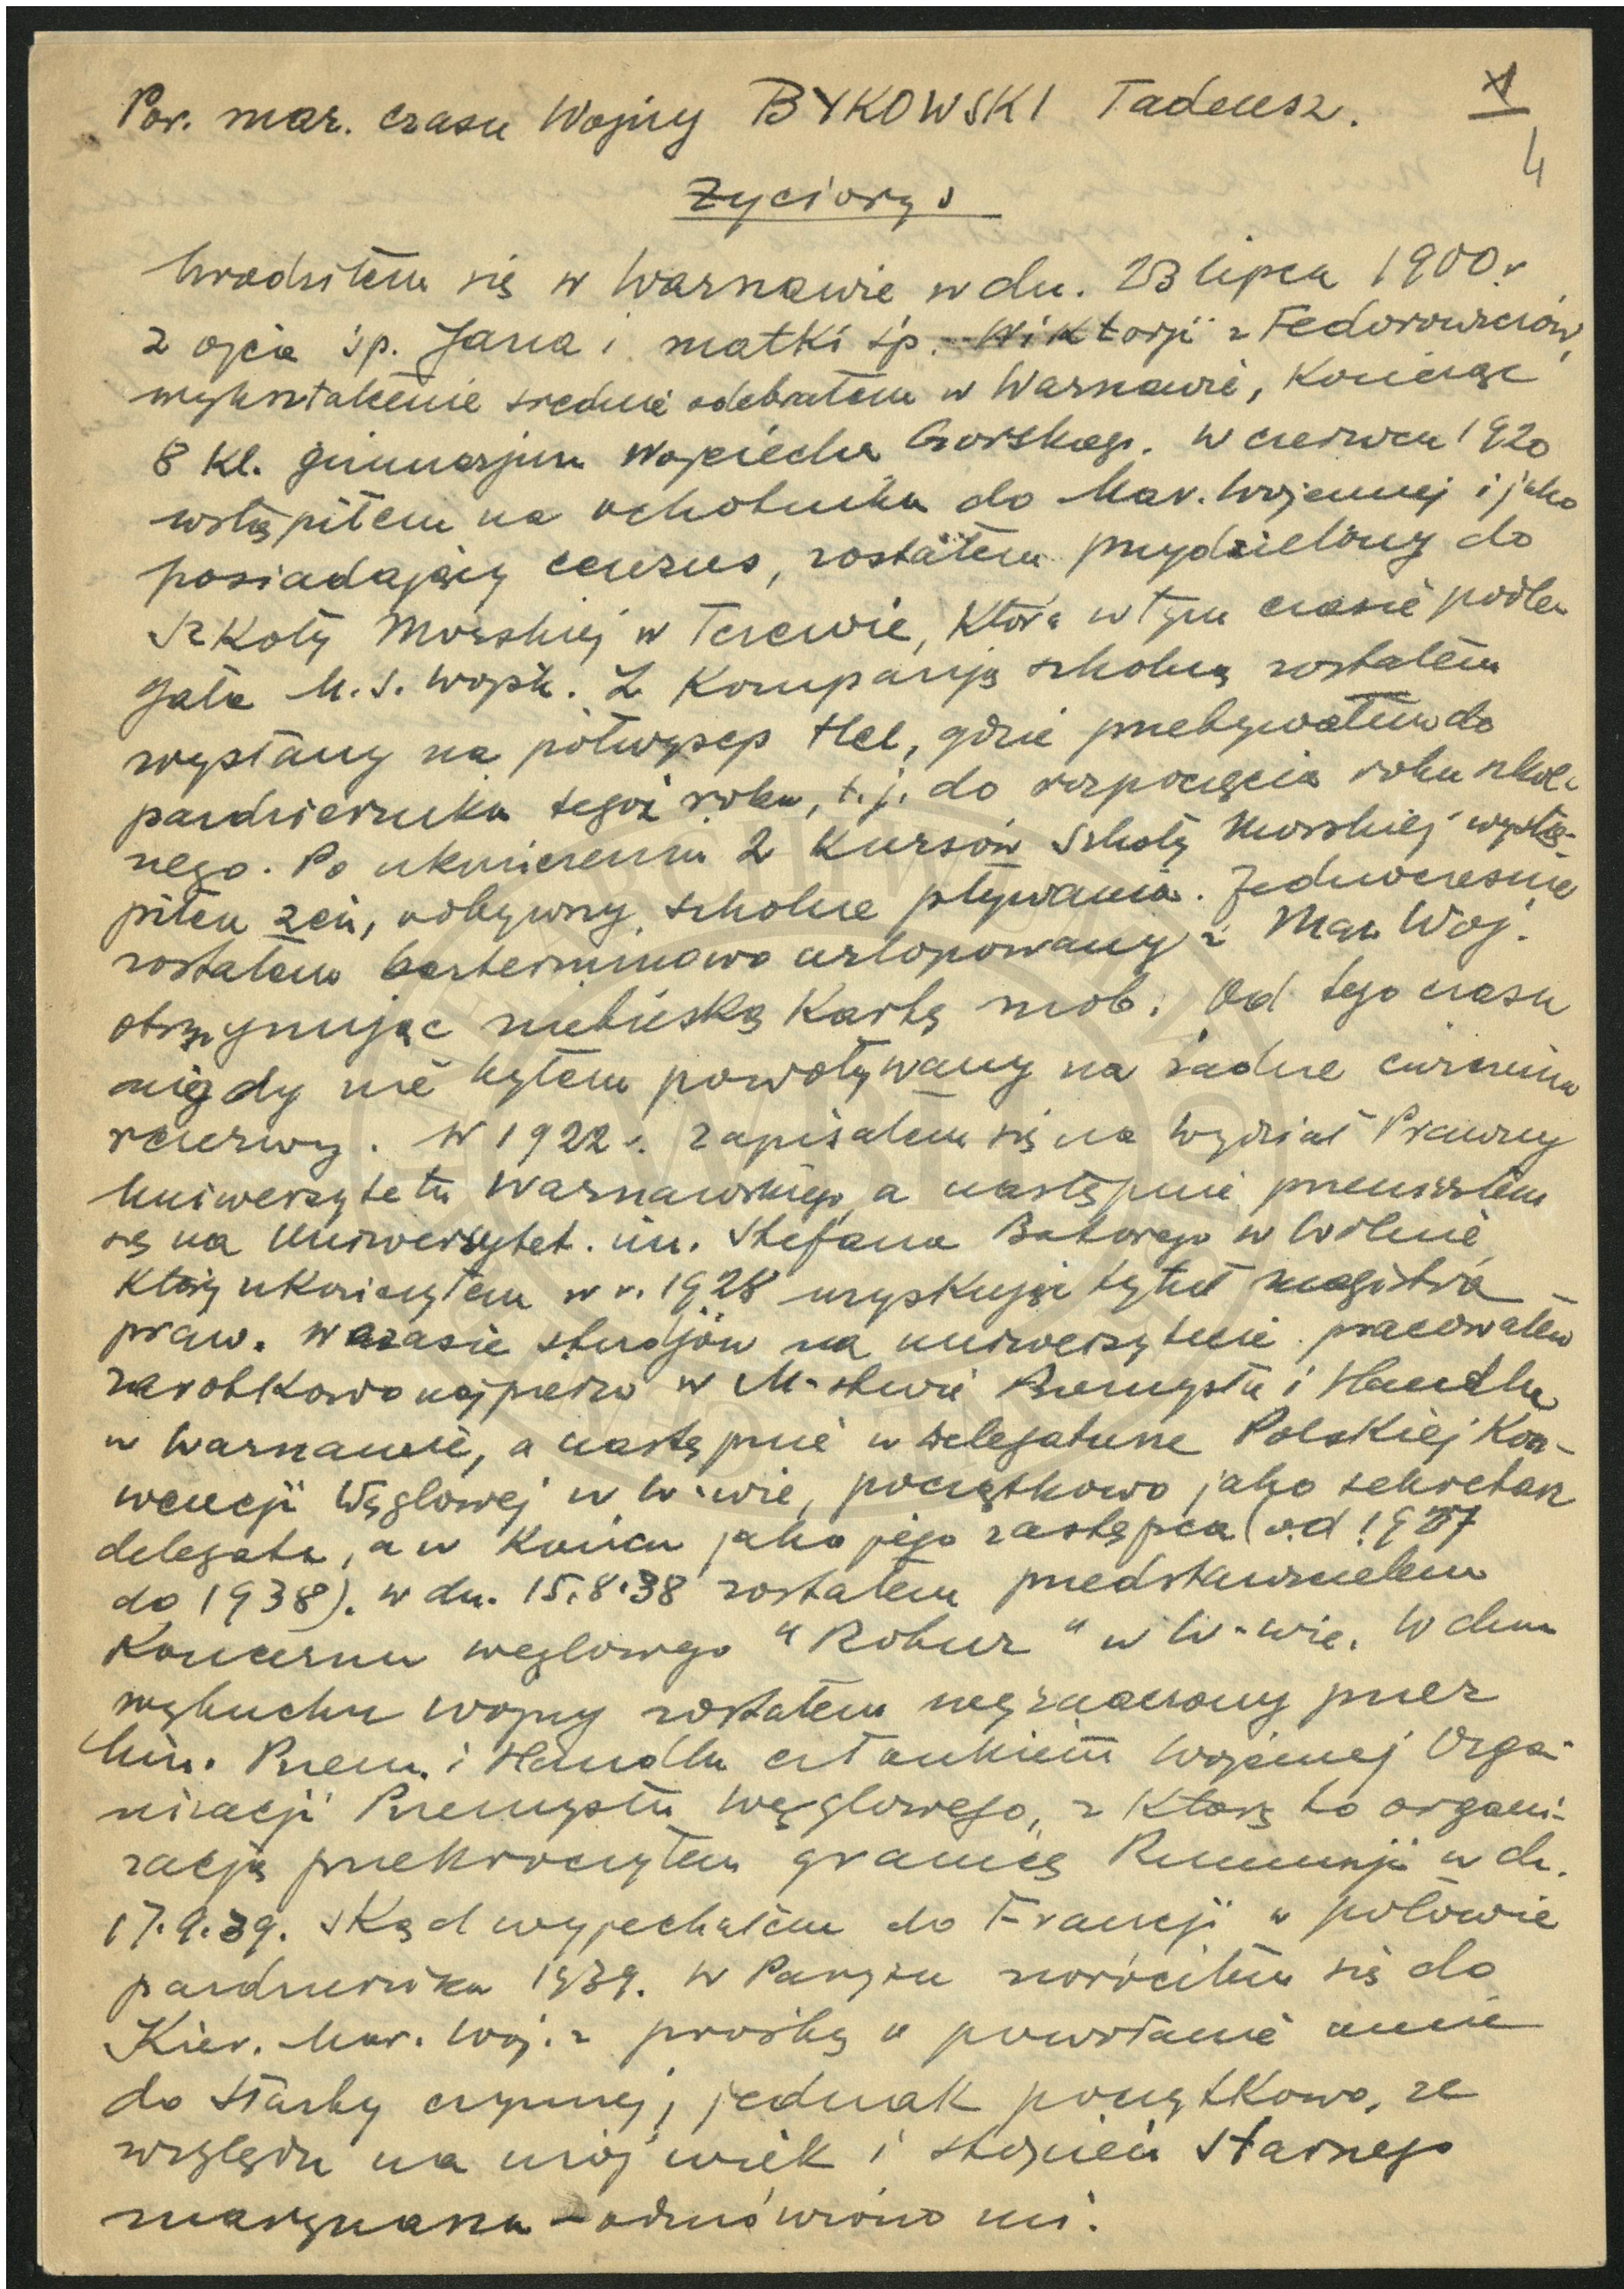 Por. mar. czasu Wojny BYKOWSKI Tadeusz.
1
4
Życiorys
Urodziłem się w Warszawie w dn. 23 lipca 1900 r.
z ojca śp. Jana i matki śp. Wiktorji z Fedorowiczów,
wykształcenie średnie odebrałem w Warszawie, kończąc
8 kl. gimnazjum Wojciecha Górskiego. W czerwcu 1920
wstąpiłem na ochotnika do Mar. Wojennej i jako
posiadający cenzus, zostałem przydzielony do
Szkoły Morskiej w Tczewie, która w tym czasie podle-
gała M. S. Wojsk. Z Kompanją szkolną zostałem
wysłany na półwysep Hel, gdzie przebywałem do
października tegoż roku, t.j. do rozpoczęcia roku szkol-
nego. Po ukończeniu 2 Kursów Szkoły Morskiej wystą-
piłem zeń, odbywszy szkolne pływania. Jednocześnie
zostałem bezterminowo urlopowany z Mar. Woj.
otrzymując niebieską Kartę mob. Od tego czasu
nigdy nie byłem powoływany na żadne ćwiczenia
rezerwy. W 1922 r. zapisałem się na Wydział Prawny
Uniwersytetu Warszawskiego, a następnie przeniosłem
się na Uniwersytet im. Stefana Batorego w Wilnie,
który ukończyłem w r. 1928 uzyskując tytuł magistra
praw. W czasie studjów na uniwersytecie pracowałem
zarobkowo najpierw w M-stwie Przemysłu i Handlu
w Warszawie, a następnie w delegaturze Polskiej Kon-
wencji Węglowej w W-wie, początkowo jako sekretarz
delegata, a w końcu jako jego zastępca (od 1927
do 1938). w dn. 15.8.38 zostałem przedstawicielem
Koncernu węglowego "Robur" w W-wie. W dniu
wybuchu wojny zostałem wyznaczony przez
Min. Przem. i Handlu członkiem Wojennej Orga-
nizacji Przemysłu Węglowego, z którą to organi-
zacją przekroczyłem granicę Rumunji w dn.
17.9.39. skąd wyjechałem do Francji w połowie
października 1939. W Paryżu zwróciłem się do
Kier. Mar. Woj. z prośbą o powołanie mnie
do służby czynnej, jednak początkowo, ze
względu na mój wiek i stopień starszego
marynarza - odmówiono mi.